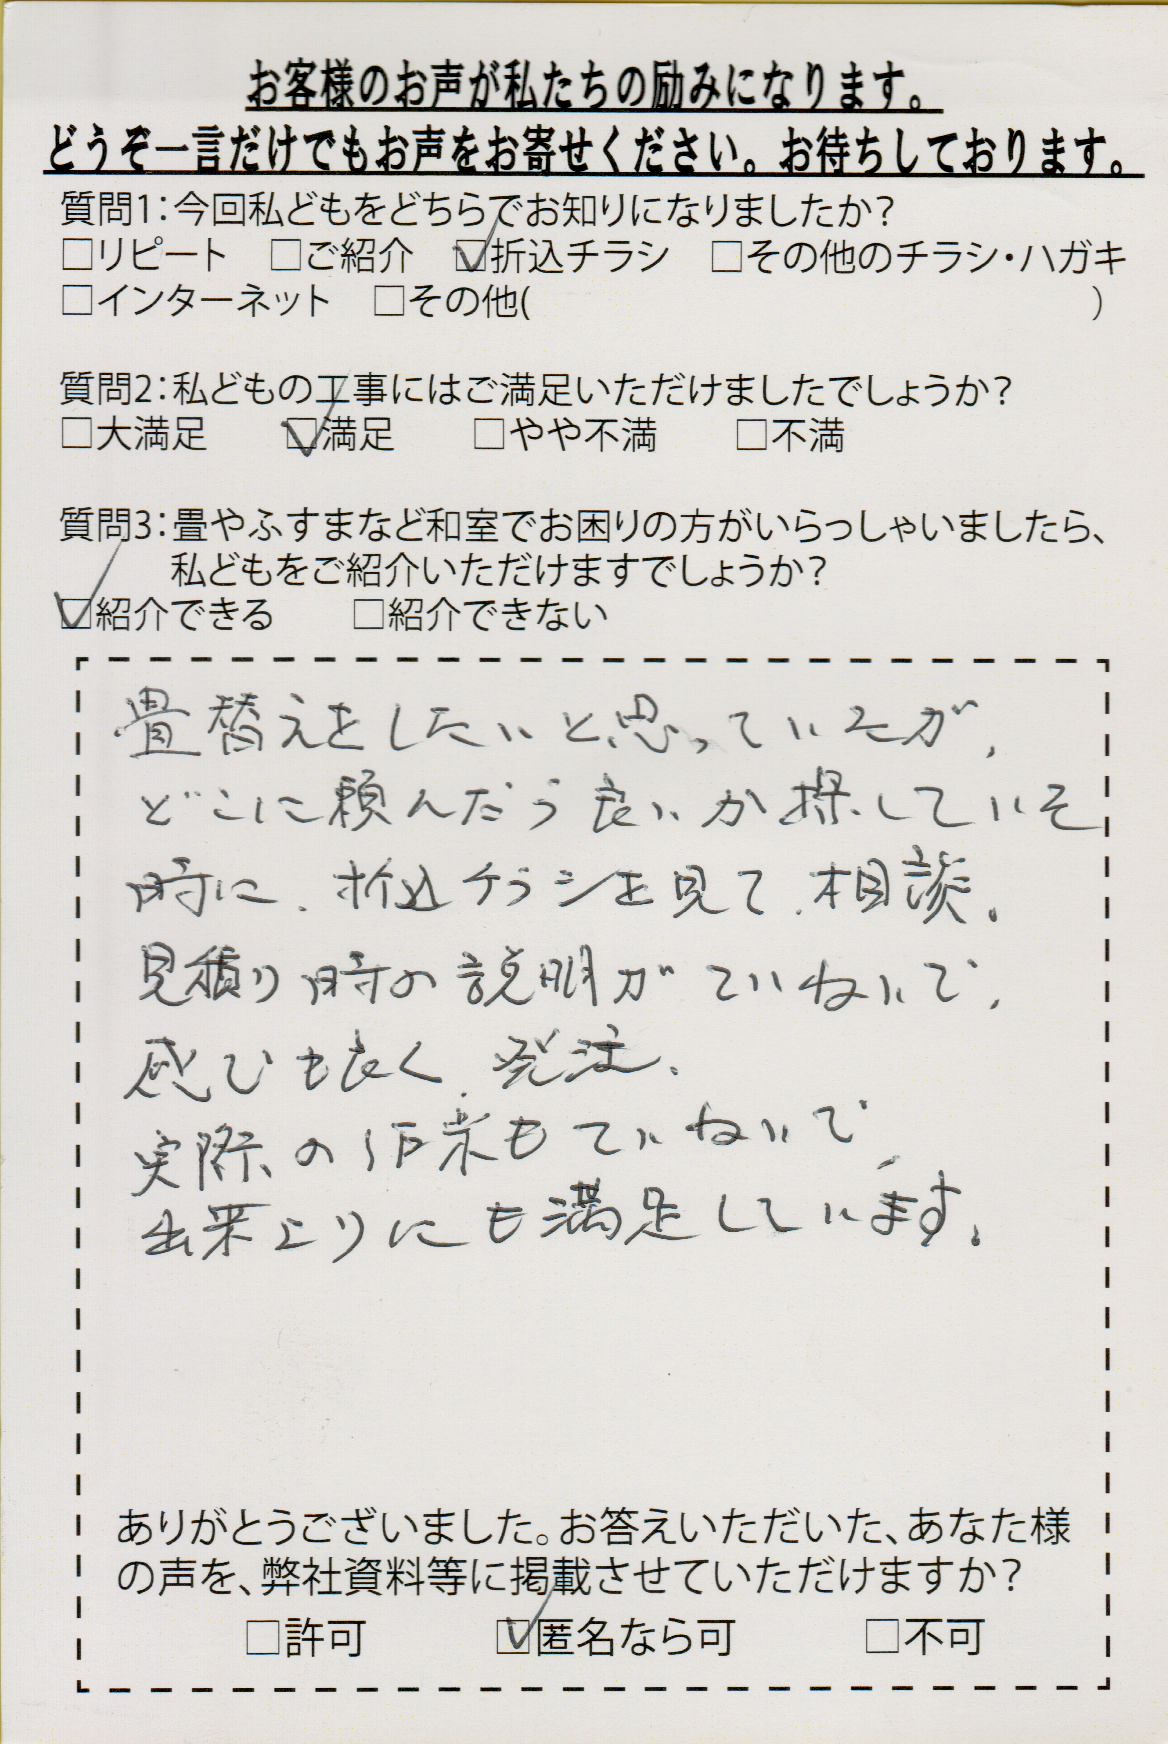 お客様のお声が私たちの励みになります。
どうぞ一言だけでもお声をお寄せください。お待ちしております。
質問1：今回私どもをどちらでお知りになりましたか？
□リピート □ご紹介 ☑折込チラシ □その他のチラシ・ハガキ
□インターネット □その他( )
質問2：私どもの工事にはご満足いただけましたでしょうか？
□大満足 ☑満足 □やや不満 □不満
質問3：畳やふすまなど和室でお困りの方がいらっしゃいましたら、
私どもをご紹介いただけますでしょうか？
☑紹介できる □紹介できない
畳替えをしたいと思っていたが、
どこに頼んだら良いか探していた
時に、折込チラシを見て、相談。
見積り時の説明がていねいで、
感じも良く、発注、
実際の作業もていねいで、
出来上りにも満足しています。
ありがとうございました。お答えいただいた、あなた様
の声を、弊社資料等に掲載させていただけますか？
□許可 ☑匿名なら可 □不可